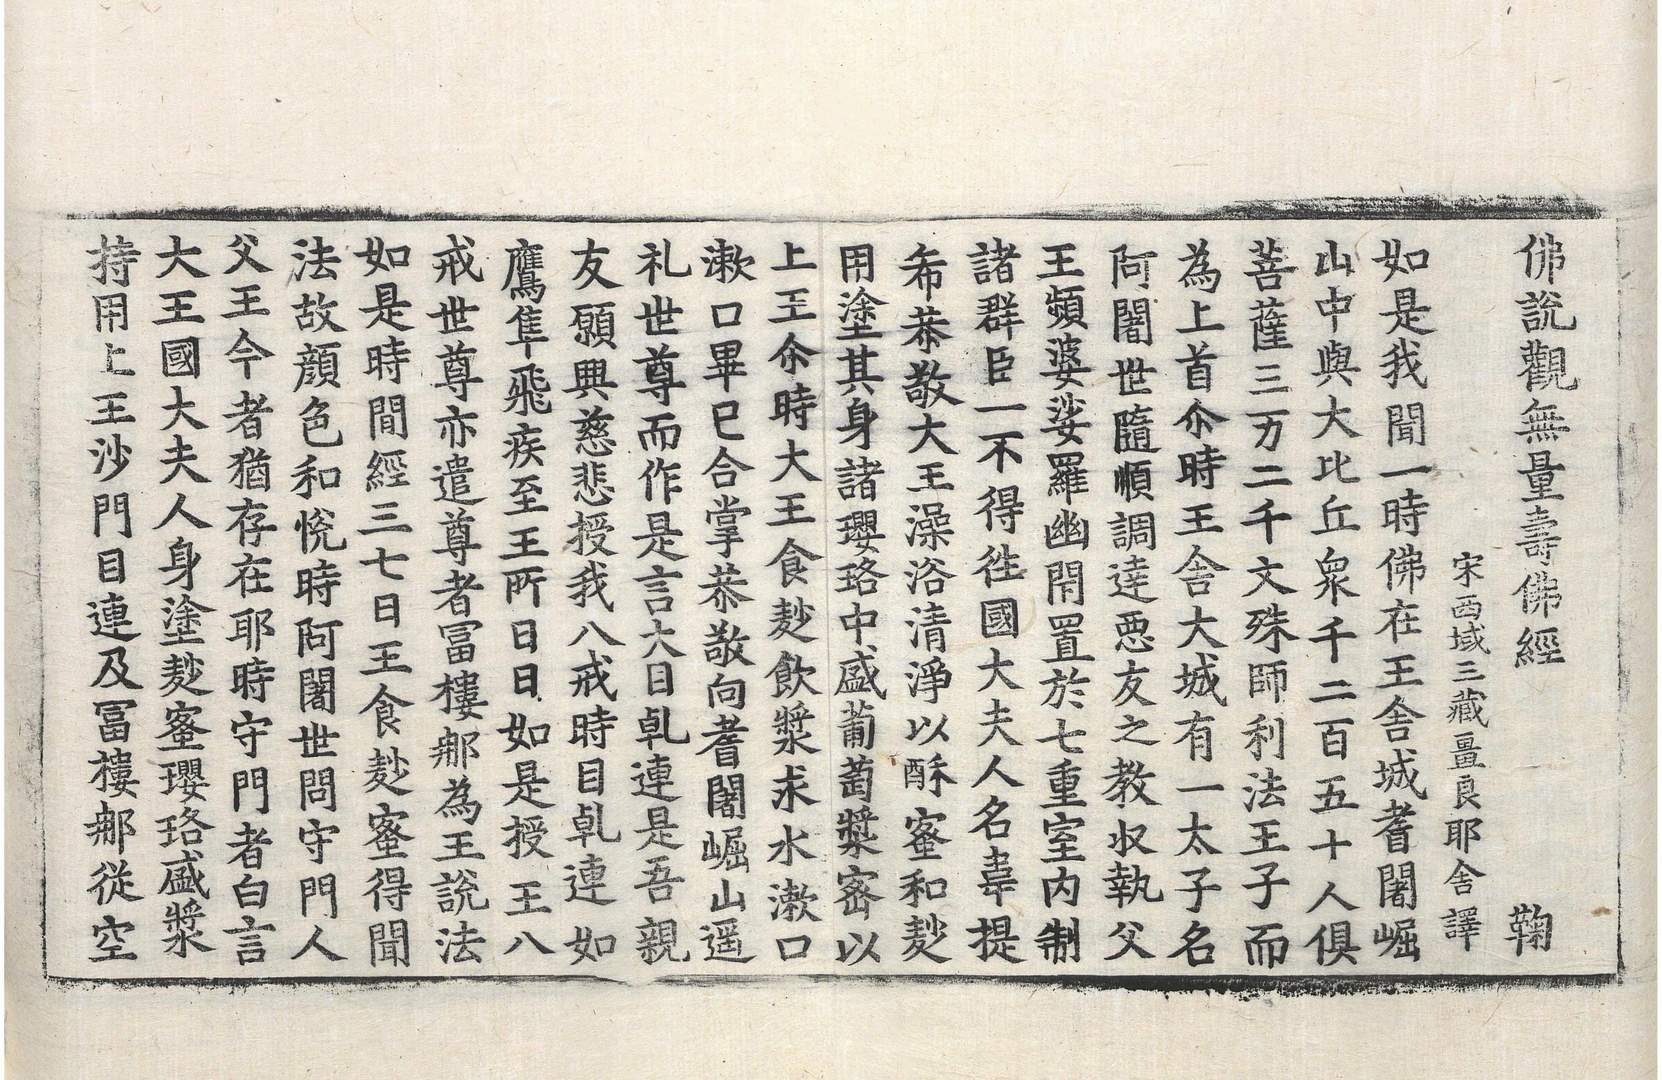 佛說觀無量壽佛經　鞠
宋西域三藏畺良耶舍譯
如是我聞一時佛在王舍城耆闍崛
山中與大比丘衆千二百五十人俱
菩薩三万二千文殊師利法王子而
為上首尒時王舍大城有一太子名
阿闍世隨順調達惡友之教收執父
王頻婆娑羅幽閇置於七重室內制
諸群臣一不得徃國大夫人名韋提
希恭敬大王澡浴清淨以酥蜜和麨
用塗其身諸瓔珞中盛葡萄漿密以
上王尒時大王食麨飲漿求水漱口
漱口畢已合掌恭敬向耆闍崛山遥
礼世尊而作是言大目乹連是吾親
友願興慈悲授我八戒時目乹連如
鷹隼飛疾至王所日日如是授王八
戒世尊亦遣尊者冨樓那為王說法
如是時間經三七日王食麨蜜得聞
法故顔色和恱時阿闍世問守門人
父王今者猶存在耶時守門者白言
大王國大夫人身塗麨蜜瓔珞盛漿
持用上王沙門目連及冨樓那從空